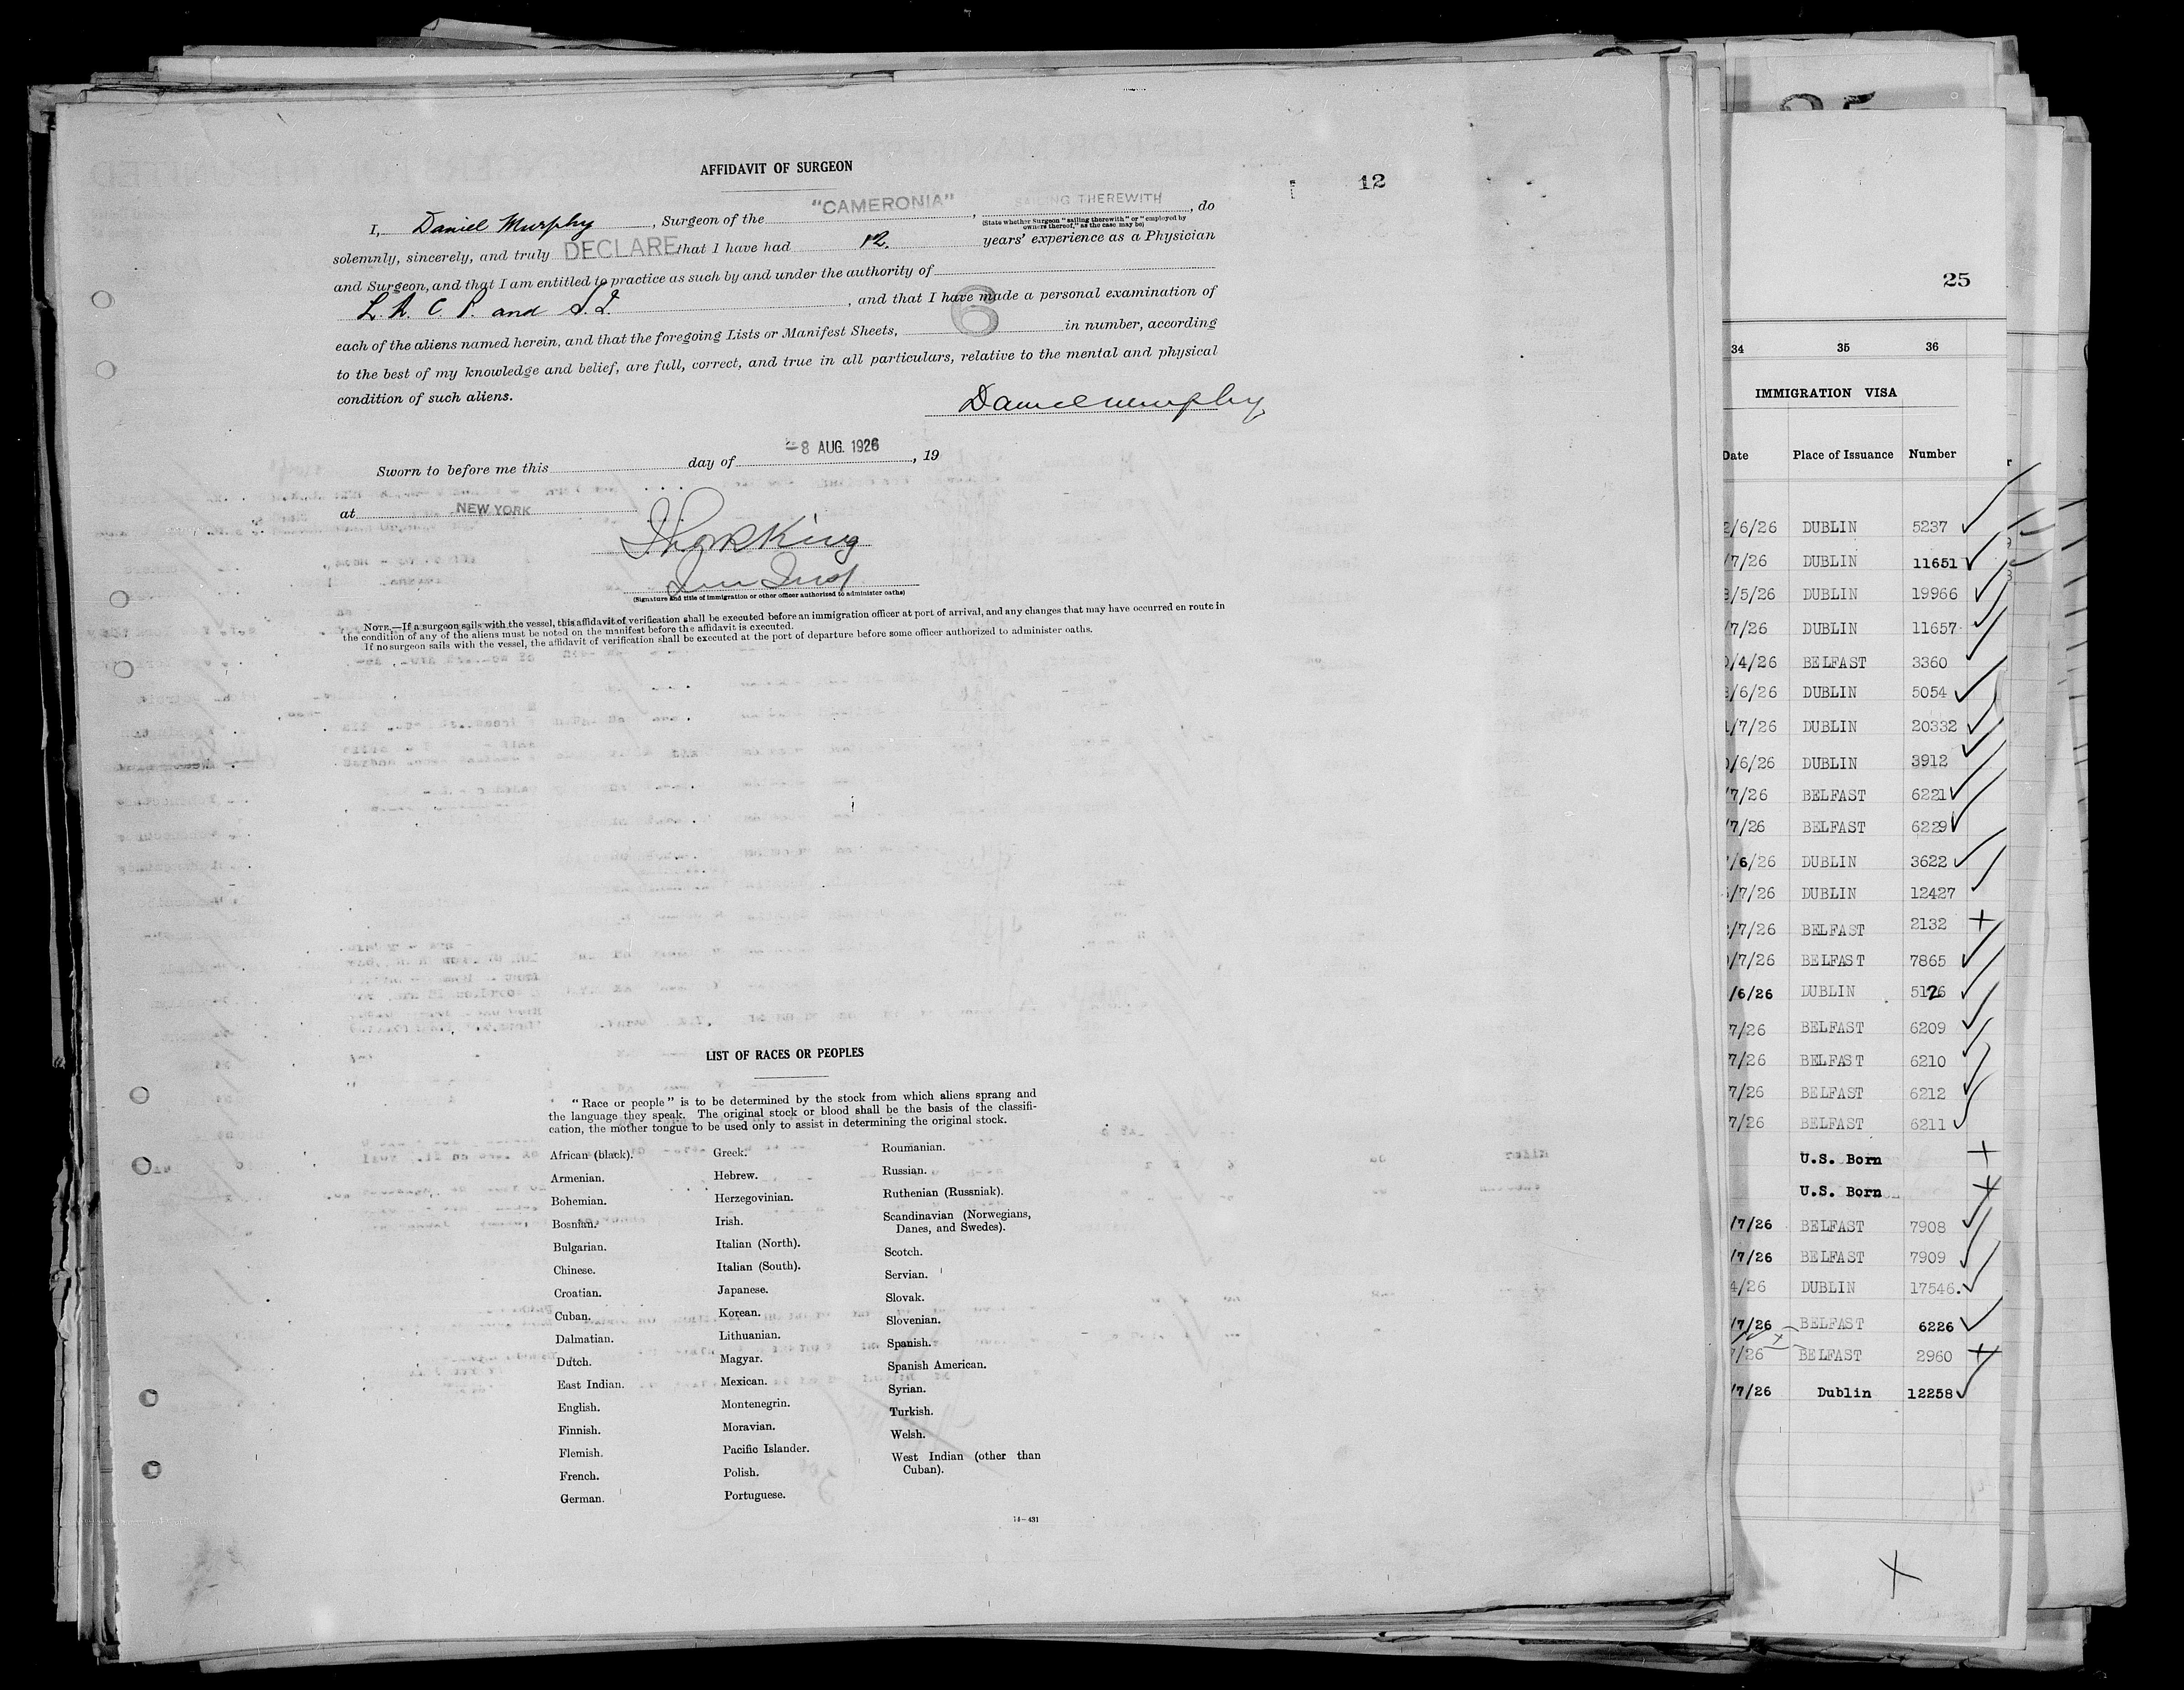 AFFIDAVIT OF SURGEON
12
I, Daniel Murphy, Surgeon of the "CAMERONIA", SAILING THEREWITH, do
(State whether Surgeon "sailing therewith" or "employed by
owners thereof," as the case may be)
solemnly, sincerely, and truly DECLARE that I have had 12. years' experience as a Physician
and Surgeon, and that I am entitled to practice as such by and under the authority of
L. R. C. P. and S. I., and that I have made a personal examination of
each of the aliens named herein, and that the foregoing Lists or Manifest Sheets, 6 in number, according
to the best of my knowledge and belief, are full, correct, and true in all particulars, relative to the mental and physical
condition of such aliens.
Daniel Murphy
Sworn to before me this day of -8 AUG. 1926, 19
at NEW YORK
(Signature and title of immigration or other officer authorized to administer oaths)
NOTE.—If a surgeon sails with the vessel, this affidavit of verification shall be executed before an immigration officer at port of arrival, and any changes that may have occurred en route in
the condition of any of the aliens must be noted on the manifest before the affidavit is executed.
If no surgeon sails with the vessel, the affidavit of verification shall be executed at the port of departure before some officer authorized to administer oaths.
LIST OF RACES OR PEOPLES
"Race or people" is to be determined by the stock from which aliens sprang and
the language they speak. The original stock or blood shall be the basis of the classifi-
cation, the mother tongue to be used only to assist in determining the original stock.
African (black).
Armenian.
Bohemian.
Bosnian.
Bulgarian.
Chinese.
Croatian.
Cuban.
Dalmatian.
Dutch.
East Indian.
English.
Finnish.
Flemish.
French.
German.
Greek.
Hebrew.
Herzegovinian.
Irish.
Italian (North).
Italian (South).
Japanese.
Korean.
Lithuanian.
Magyar.
Mexican.
Montenegrin.
Moravian.
Pacific Islander.
Polish.
Portuguese.
Roumanian.
Russian.
Ruthenian (Russniak).
Scandinavian (Norwegians,
Danes, and Swedes).
Scotch.
Servian.
Slovak.
Slovenian.
Spanish.
Spanish American.
Syrian.
Turkish.
Welsh.
West Indian (other than
Cuban).
14—431
25
34 35 36
IMMIGRATION VISA
Date Place of Issuance Number
2/6/26 DUBLIN 5237
/7/26 DUBLIN 11651
/5/26 DUBLIN 19966
/7/26 DUBLIN 11657
0/4/26 BELFAST 3360
/6/26 DUBLIN 5054
1/7/26 DUBLIN 20332
/6/26 DUBLIN 3912
/7/26 BELFAST 6221
/7/26 BELFAST 6229
/6/26 DUBLIN 3622
/7/26 DUBLIN 12427
/7/26 BELFAST 2132
/7/26 BELFAST 7865
/6/26 DUBLIN 5126
7/26 BELFAST 6209
7/26 BELFAST 6210
7/26 BELFAST 6212
7/26 BELFAST 6211
U.S. Born
U.S. Born
/7/26 BELFAST 7908
/7/26 BELFAST 7909
4/26 DUBLIN 17546.
/7/26 BELFAST 6226
7/26 BELFAST 2960
/7/26 Dublin 12258